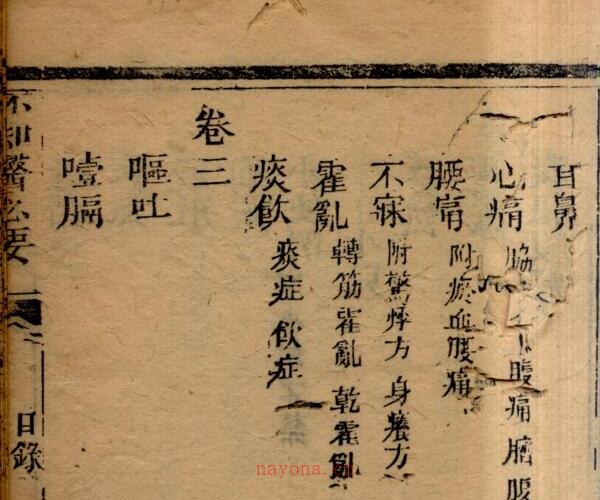 耳鼻
心痛 腹痛
腰痛 附瘀血腰痛
不寐 附驚悸方 身癢方
霍亂 轉筋霍亂 乾霍亂
痰飲 痰症 飲症
卷三
嘔吐
噎膈
不知醫必要 目錄